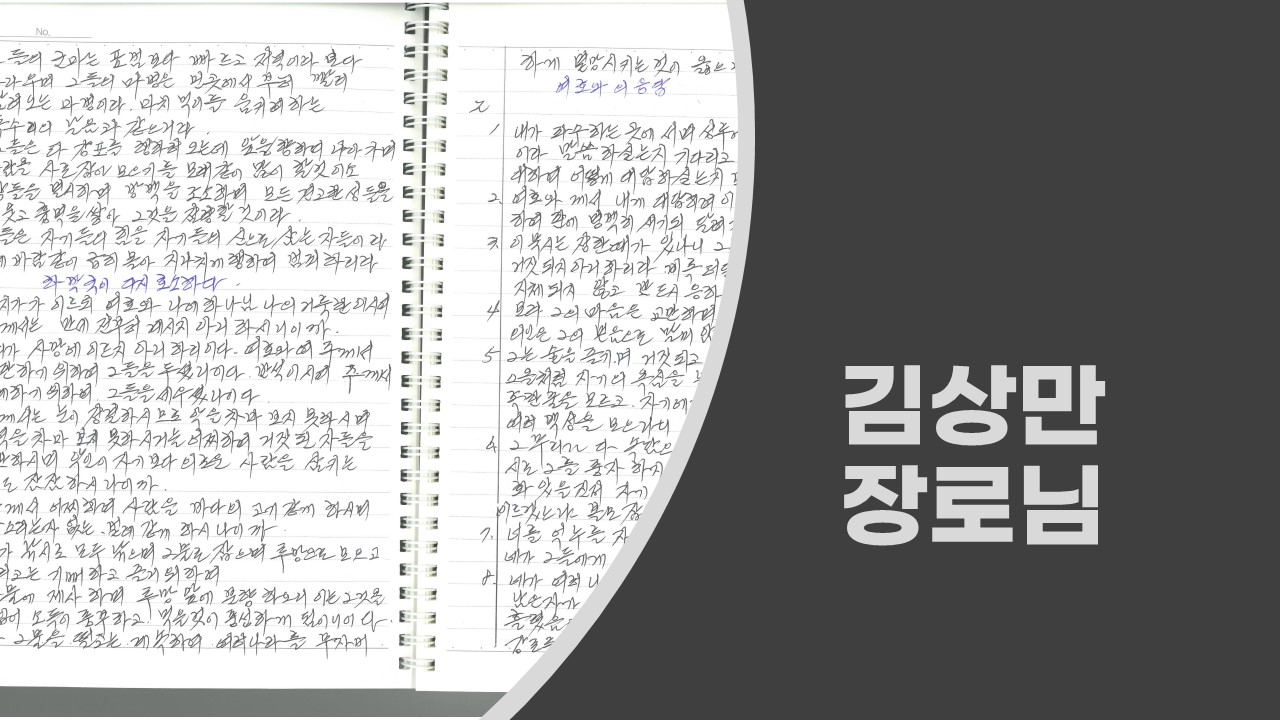 No.
들의 군마는 표범보다 빠르고 저녁이리 보다
사나우며 그들의 마병은 먼곳에서 부터 빨리
달려오는 마병이라 마치 먹이를 움키려 하는
독수리의 날음과 같으니라.
그들은 다 강포를 행하러 오는데 앞을 향하여 나아가며
사람을 사로잡아 모으기를 모래같이 많이 할것이요
왕들을 멸시하며 방백을 조소하며 모든 견고한 성들을
웃고 흉벽을 쌓아 그것을 점령할 것이라.
그들은 자기들의 힘을 자기들의 신으로 삼는 자들이라
바람같이 급히 몰아 지나치게 행하여 범죄하리라
하박국이 다시 호소하다
선지자가 이르되 여호와 나의 하나님 나의 거룩한 이시여
주께서는 만세 전부터 계시지 아니 하시니이까.
우리가 사망에 이르지 아니 하리이다. 여호와여 주께서
심판하기 위하여 그들을 두셨나이다 반석이시여 주께서
경계하기 위하여 그들을 세우셨나이다
주께서는 눈이 정결하시므로 악을 차마 보지 못하시며
패역을 차마 보지 못하시거늘 어찌하여 거짓된 자들을
방관하시며 악인이 자기 보다 의로운 사람을 삼키는
데도 잠잠 하시나이까.
주께서 어찌하여 사람을 바다의 고기 같게 하시며
다스리는 자 없는 벌레 같게 하시나이까.
그가 낚시로 모두 낚으며 그물로 잡으며 투망으로 모으고
그리고는 기뻐하고 즐거워하여
그물에 제사 하며 투망 앞에 분향 하오니 이는 그것을
힘입어 소득이 풍부하고 먹을것이 풍성하게 됨이니이다.
그가 그물을 떨고는 계속하여 여러나라를 무자비
하게 멸망시키는것이 옳으
여호와의 응답
2
1. 내가 파수하는 곳에 서며 성루에
이라 말씀 하실는지 기다리고
대하여 어떻게 대답하실는지
2. 여호와 께서 내게 대답하여 이
하여 판에 명백히 새기되 달려
3. 이 묵시는 정한때가 있나니 그
거짓되지 아니 하리라 비록 더
지체 되지 않고 반드시 응하
4. 보라 그의 마음은 교만하며
의인은 그의 믿음으로 말미암
5. 그는 술을 즐기며 거짓되고
스올처럼 자기의 욕심을
족한 줄을 모르고 자기에
여러 백성을 모으나니
6. 그 무리가 다 속담으
시로 그를 풍자 하지
화 있을진저 자기
이르겠느냐 볼모 잡
7. 너를 억누를 자
네가 그들에게
8. 네가 여러 나
남은자가
흘렸음
강포로
김상만
장로님